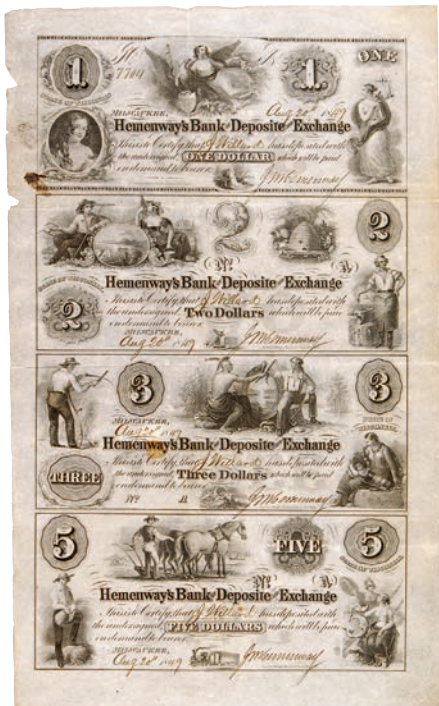 1 1 ONE
No 7704
STATE OF WISCONSIN
MILWAUKEE, Aug 20th 1849
Hemenway's Bank of Deposite and Exchange
This is to Certify, that J Willard has deposited with
the undersigned, ONE DOLLAR which will be paid
on demand to bearer.
2 2
No A
Hemenway's Bank of Deposite and Exchange
STATE OF WISCONSIN
This is to Certify, that J Willard has deposited with
2 the undersigned, Two Dollars which will be paid
on demand to bearer.
MILWAUKEE,
Aug 20th 1849
3 3
MILWAUKEE,
Aug 20th
STATE OF WISCONSIN.
Hemenway's Bank of Deposite and Exchange
This is to Certify, that J Willard has deposited with
THREE the undersigned, Three Dollars which will be paid
on demand to bearer.
No B
5 FIVE 5
STATE OF WISCONSIN.
No A
Hemenway's Bank of Deposite and Exchange
This is to Certify, that J Willard has deposited with
the undersigned, FIVE DOLLARS which will be paid 5
on demand to bearer.
MILWAUKEE,
Aug 20th 1849